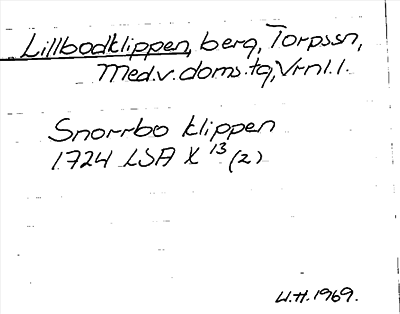 Lillbodklippen, berg, Torpssn,
Med.v.doms.tg, Vrnl.l.
Snorrbo klippen
1724 LSA X 13 (2)
W.H. 1969.